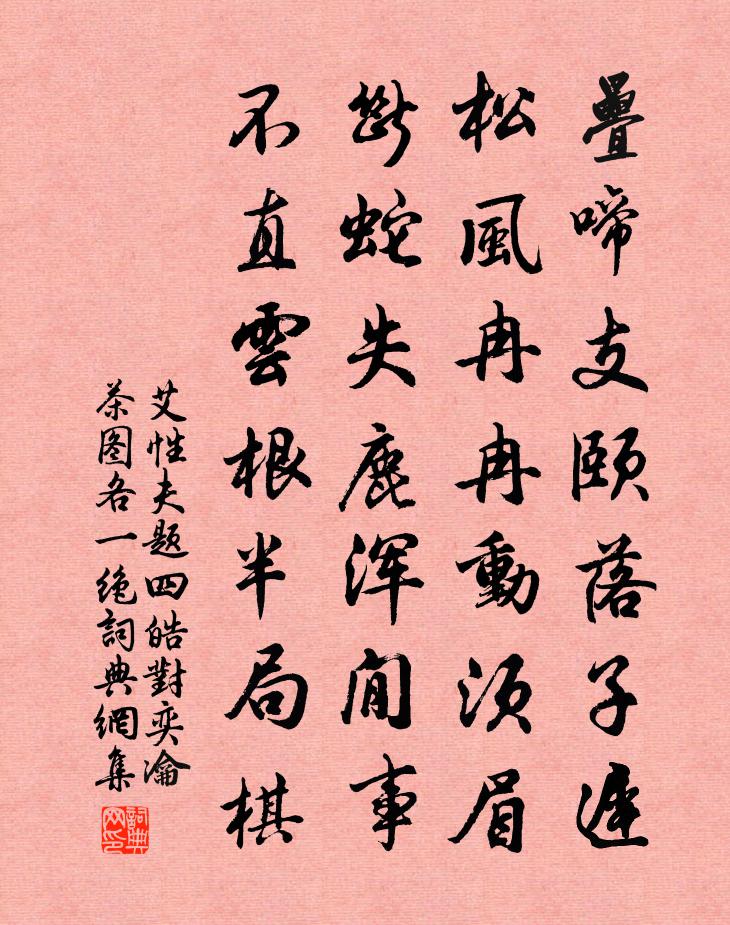 疊啼支頤落子遲
松風冉冉動須眉
斷蛇失鹿浑閒事
不直雲根半局棋
艾性夫題四皓對奕瀹
茶图各一絶詞典網集
詞典网印